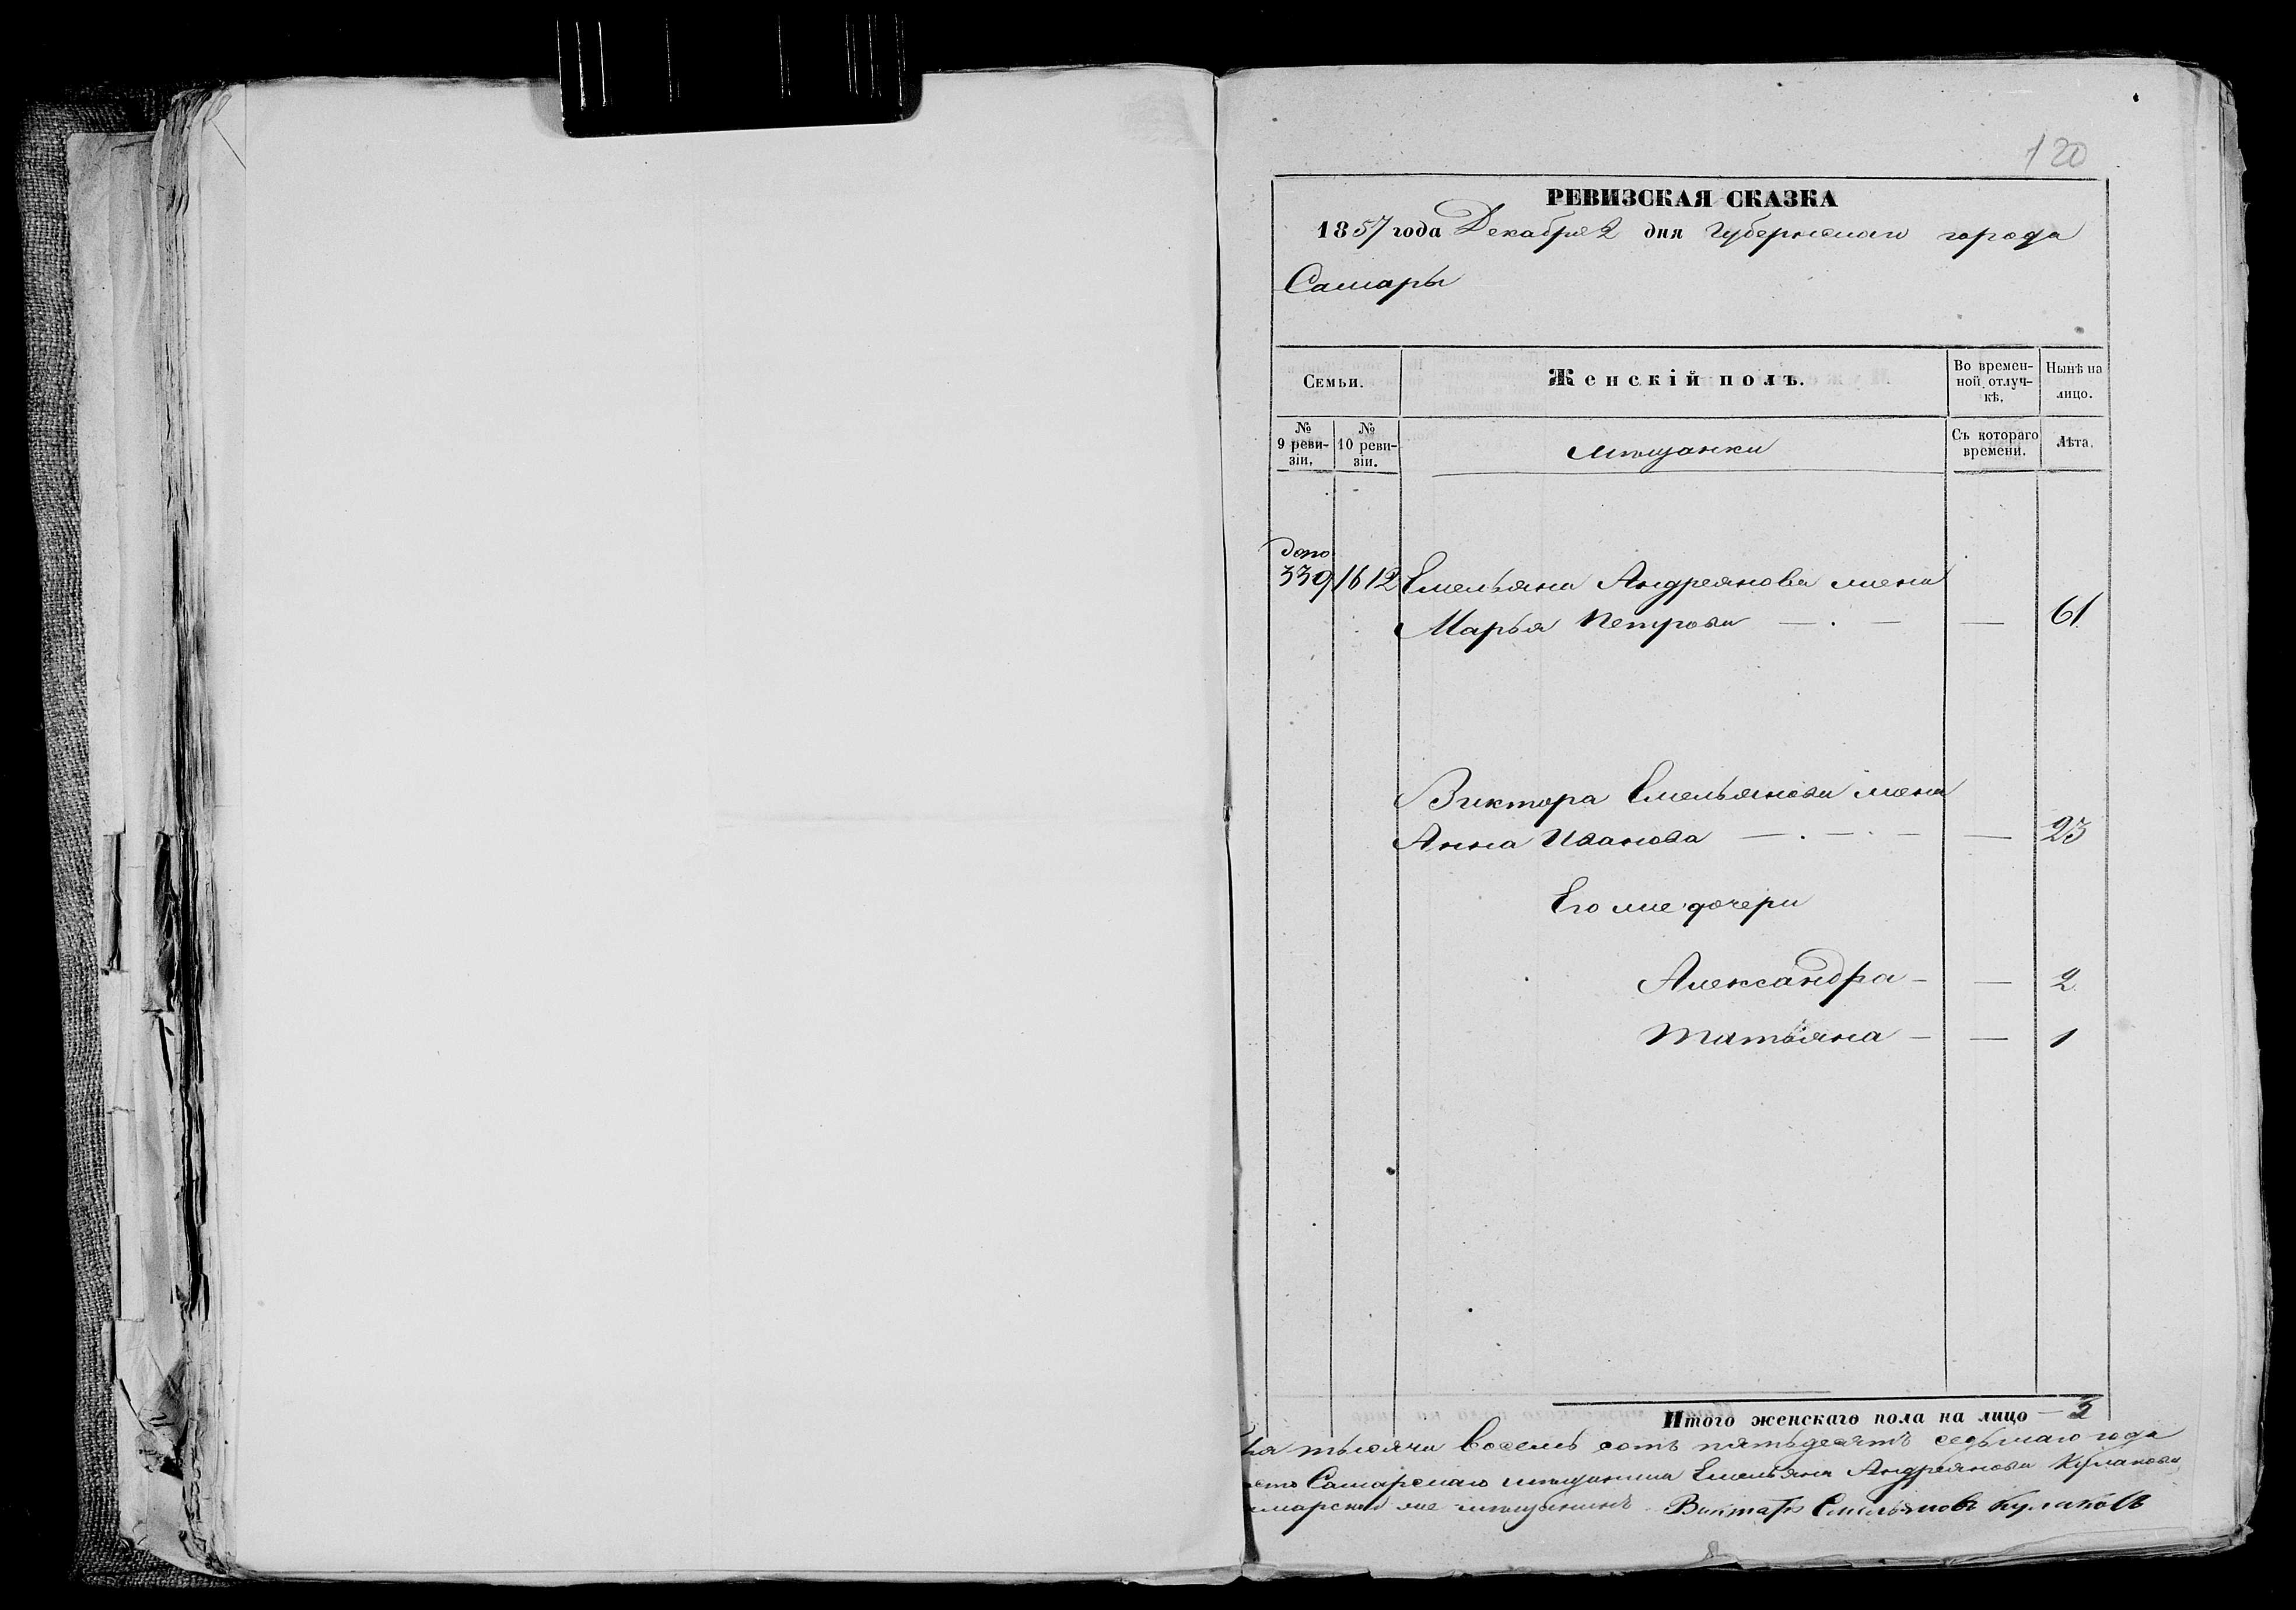 120
РЕВИЗСКАЯ СКАЗКА
1857 года Декабря 2 дня Губернскаго города
Самары
Семьи.
Женскій полъ.
Во времен-
ной отлуч-
кѣ.
Нынѣ на
лицо.
№
9 реви-
зіи.
№
10 реви-
зіи.
мѣщанки
Съ котораго
времени.
Лѣта.
допо
339 1612 Емельяна Андреянова жена
Марья Петрова — . — — 61
Виктора Емельянова жена
Анна Иванова — . — . — — 23
Его же дочери
Александра — — 2
Татьяна — — 1
Итого женскаго пола на лицо —
тысяча восемь сотъ пятьдесятъ седьмаго года
Самарскаго мѣщанина Емельяна Андреянова Кулакова
же мѣщанинъ Виктаръ Емельяновъ Кулаковъ